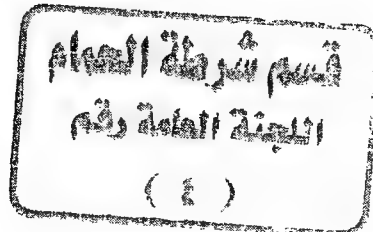 قسم شرطة الحمام
اللجنة العامة رقم
( ٤ )